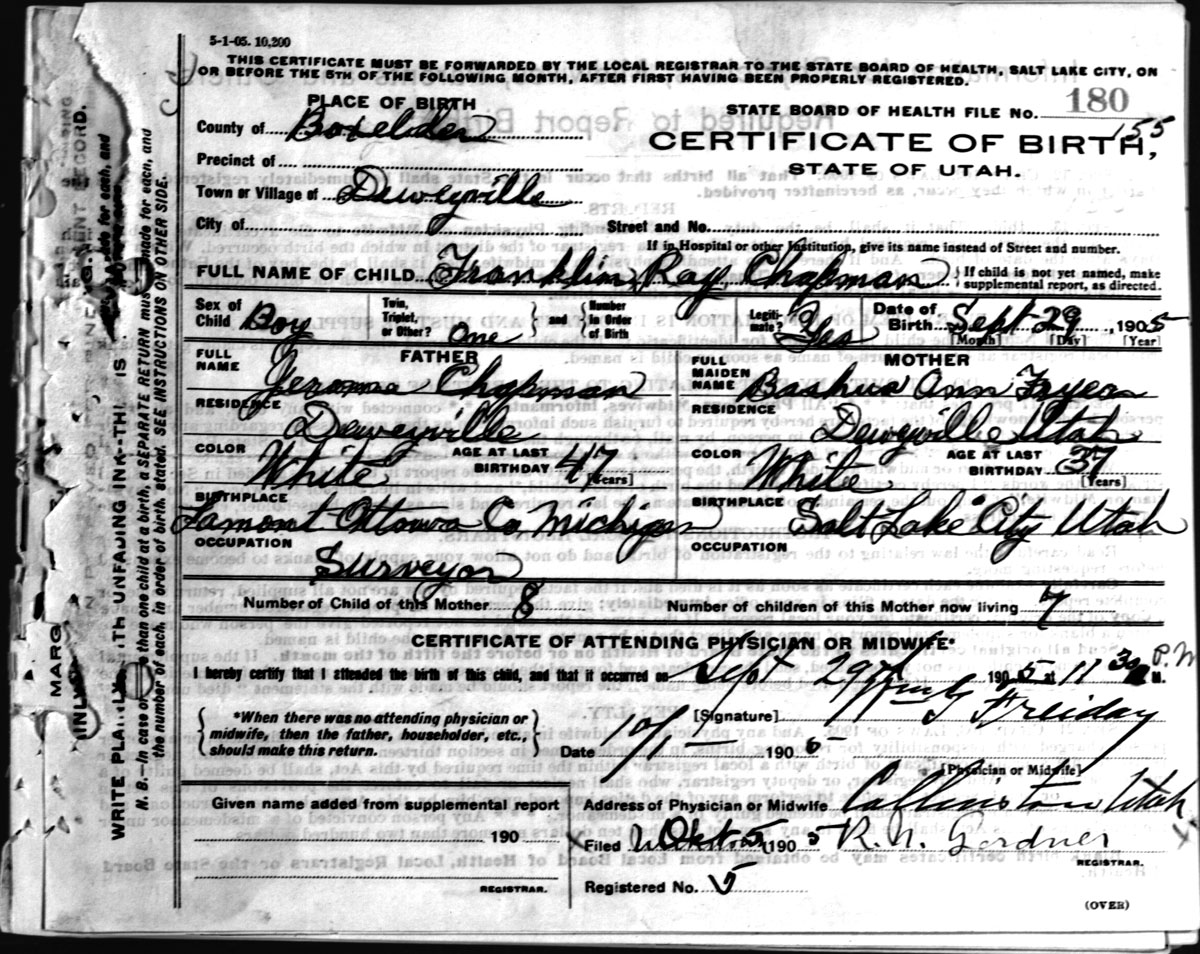 5-1-05. 10,200
THIS CERTIFICATE MUST BE FORWARDED BY THE LOCAL REGISTRAR TO THE STATE BOARD OF HEALTH, SALT LAKE CITY, ON
OR BEFORE THE 5TH OF THE FOLLOWING MONTH, AFTER FIRST HAVING BEEN PROPERLY REGISTERED.
PLACE OF BIRTH
County of Boxelder
Precinct of
Town or Village of Deweyville
City of
STATE BOARD OF HEALTH FILE No. 180
155
CERTIFICATE OF BIRTH,
STATE OF UTAH.
Street and No.
If in Hospital or other Institution, give its name instead of Street and number.
FULL NAME OF CHILD Franklin Ray Chapman } If child is not yet named, make supplemental report, as directed.
Sex of Child Boy Twin, Triplet, or Other? One } and { Number in Order of Birth Legiti-mate? Yes Date of Birth Sept 29, 1905
[Month] [Day] [Year]
FATHER
FULL NAME Jerome Chapman
RESIDENCE Deweyville
COLOR White AGE AT LAST BIRTHDAY 47 [Years]
BIRTHPLACE Lamont Ottowa Co Michigan
OCCUPATION Surveyor
MOTHER
FULL MAIDEN NAME Ann
RESIDENCE Deweyville Utah
COLOR White AGE AT LAST BIRTHDAY 37 [Years]
BIRTHPLACE Salt Lake City Utah
OCCUPATION
Number of Child of this Mother 8 Number of children of this Mother now living 7
CERTIFICATE OF ATTENDING PHYSICIAN OR MIDWIFE*
I hereby certify that I attended the birth of this child, and that it occurred on Sept 29th 1905 at 11 30 P.M. M.
{ *When there was no attending physician or midwife, then the father, householder, etc., should make this return. }
[Signature] Freiday
Date 190
[Physician or Midwife]
Given name added from supplemental report
190
REGISTRAR.
Address of Physician or Midwife Collinston Utah
Filed 5 1905 R. N. Gardner
REGISTRAR.
Registered No. 5
(OVER)
WRITE PLAINLY WITH UNFADING INK--THIS IS
N. B.--In case of more than one child at a birth, a SEPARATE RETURN must be made for each, and
the number of each, in order of birth, stated. SEE INSTRUCTIONS ON OTHER SIDE.